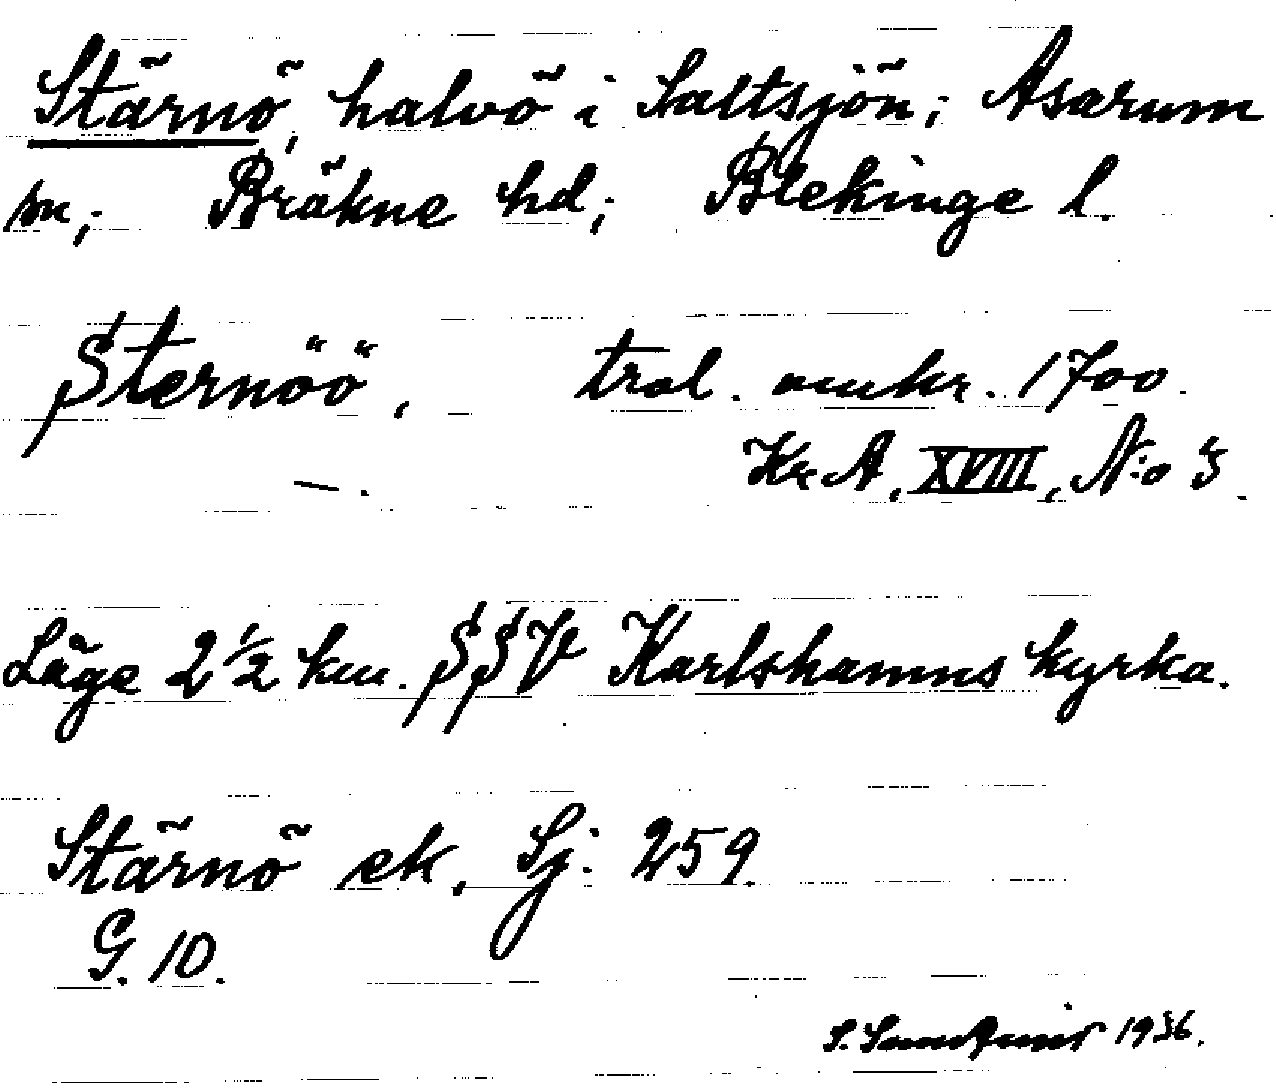 Stärnö, halvö i Saltsjön; Asarum
sn; Bräkne hd; Blekinge l.
Sternöö, trol. omkr. 1700.
Kr.A. XVIII, N:o 3.
—.
Läge 2 1/2 km. SSV Karlshamns kyrka.
Stärnö ek. Sj: 259.
G. 10.
S. 1936.